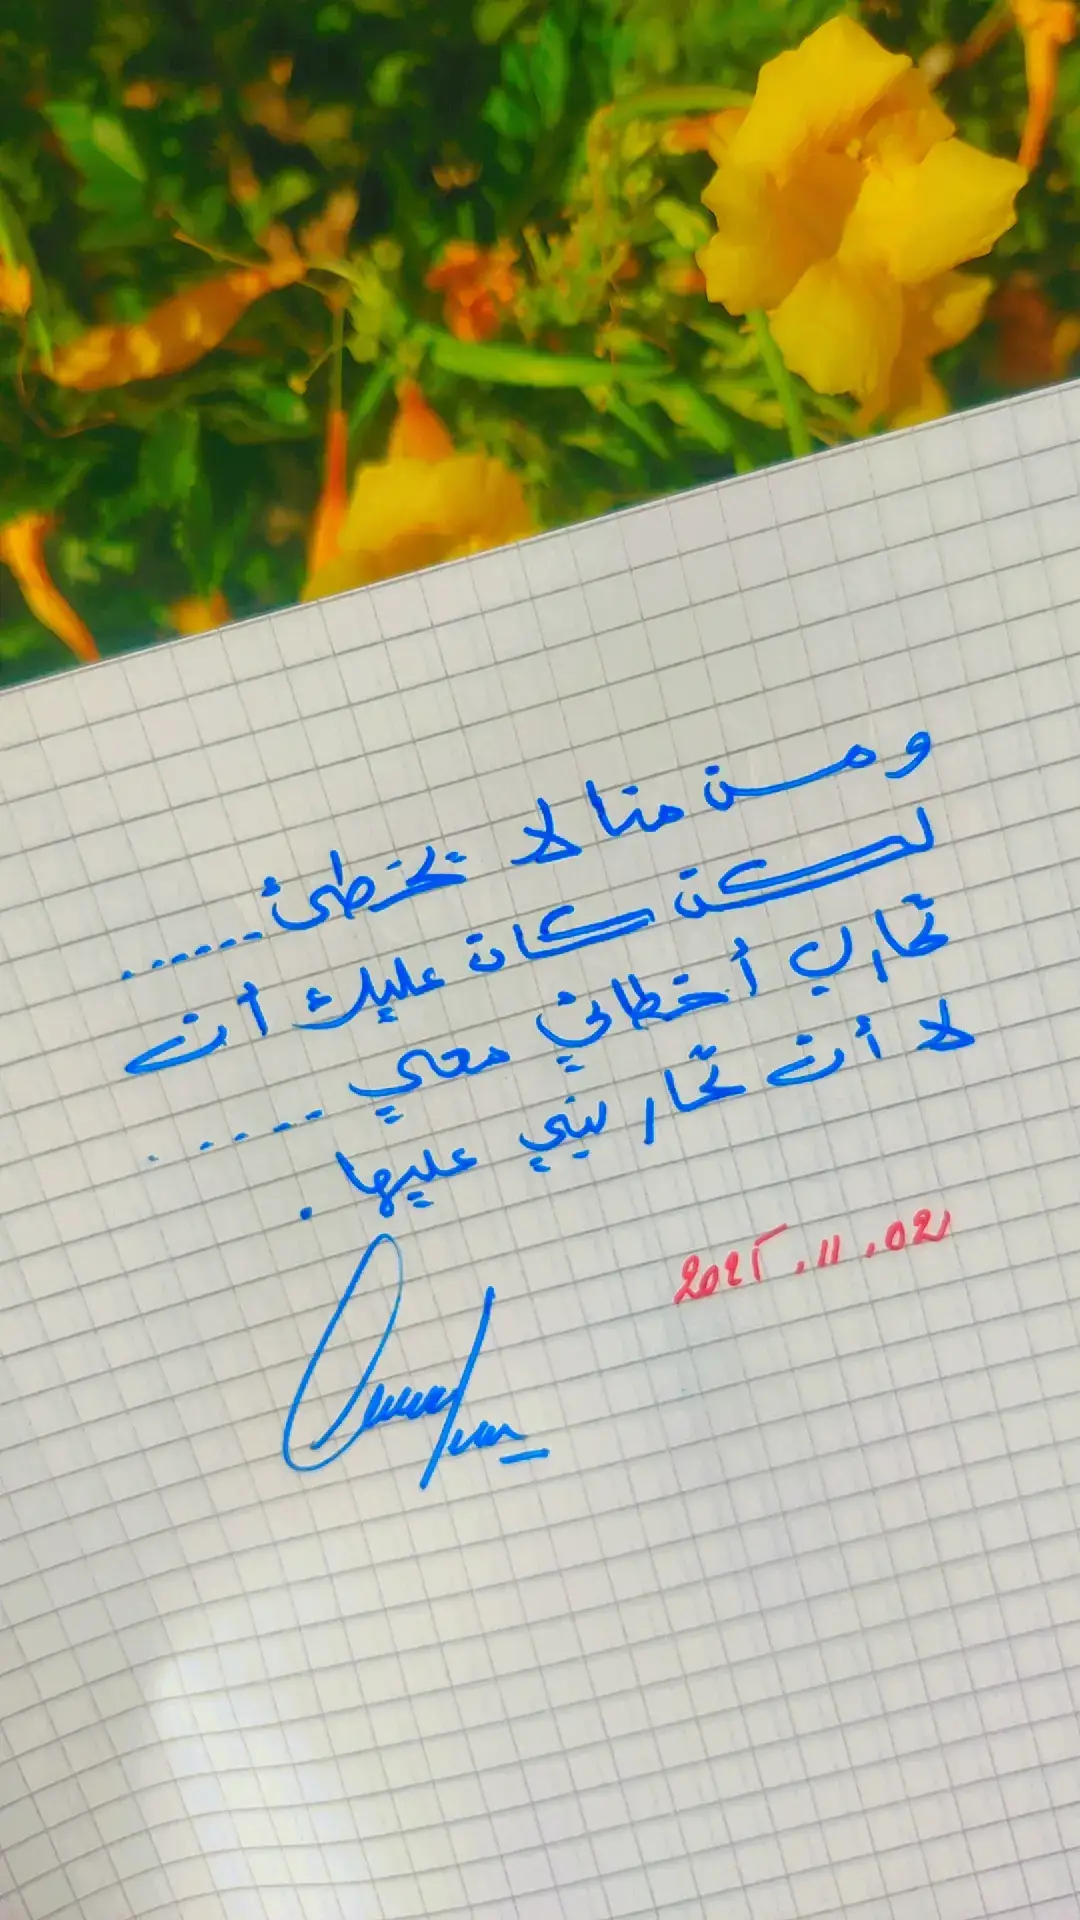 ومن منا لا يخطئ......
لكن كان عليك أن
تحارب أخطائي معي .....
لا أن تحاربني عليها .
2025.11.02